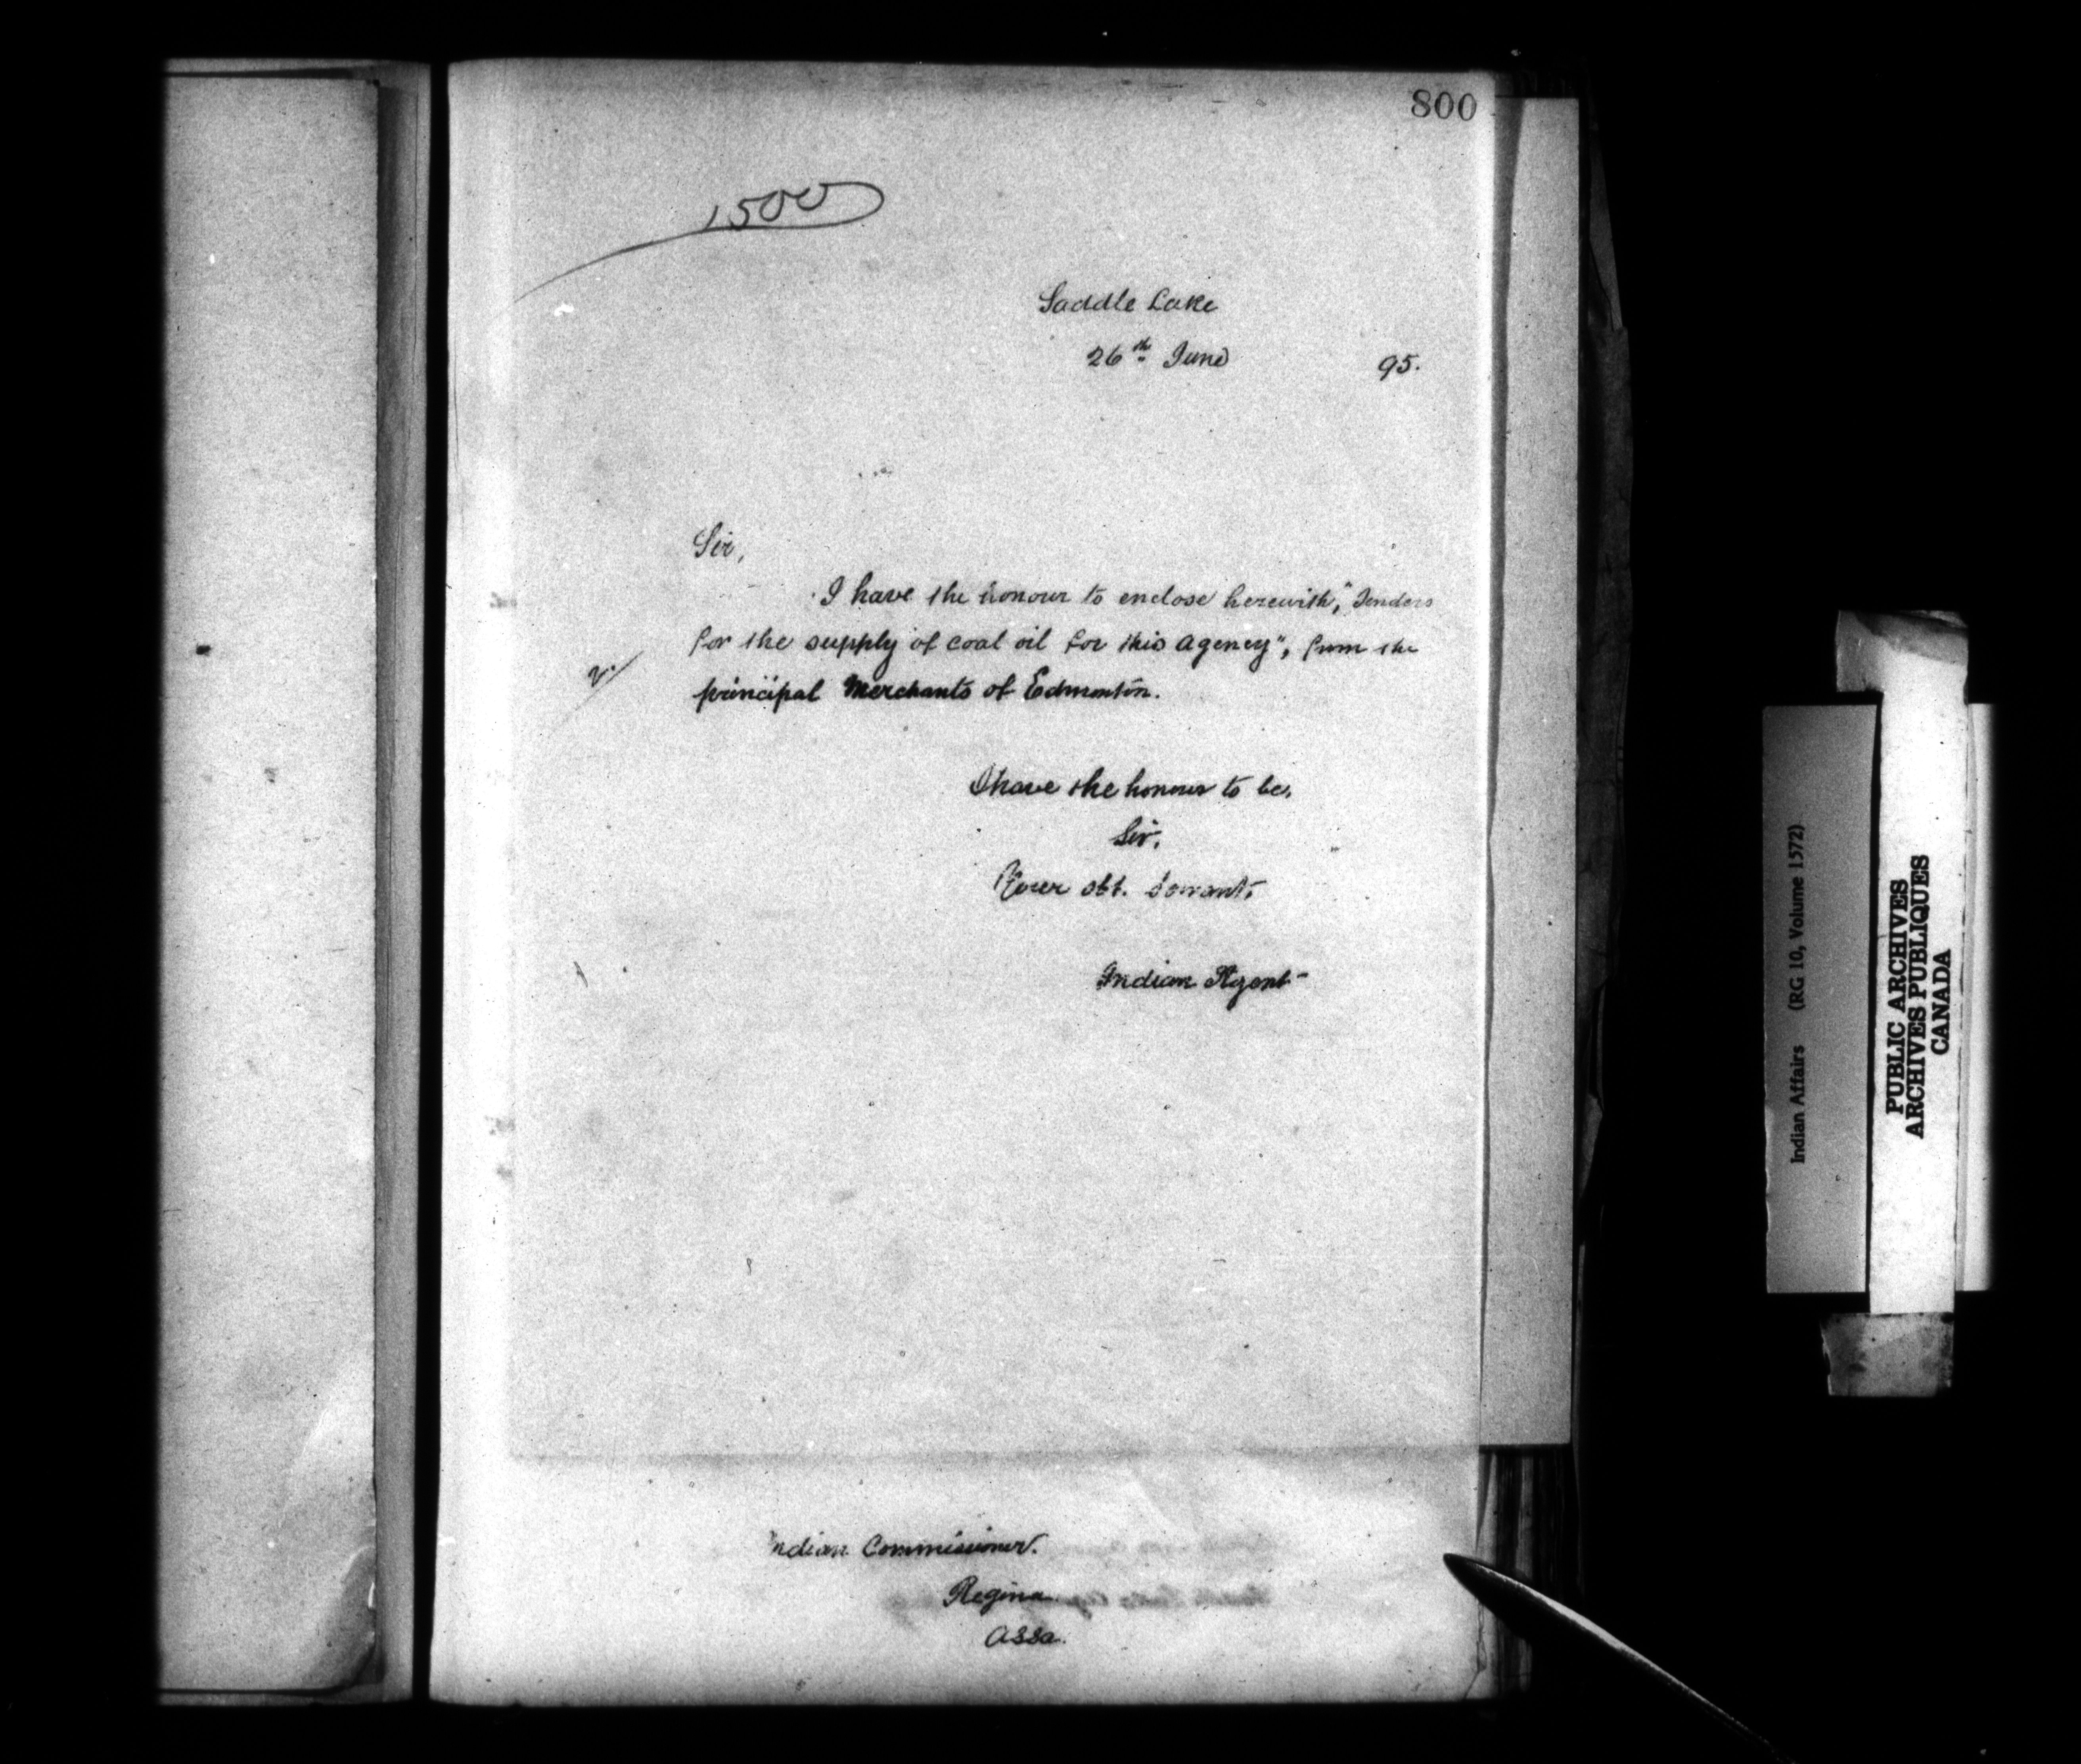 800
1500
Saddle Lake
26th June 95.
Sir,
I have the honour to enclose herewith, "Tenders
for the supply of coal oil for this Agency", from the
principal Merchants of Edmonton.
2.
I have the honour to be,
Sir,
Your obt. servant,
Indian Agent
Indian Commissioner.
Regina
Assa.
Indian Affairs (RG 10, Volume 1572)
PUBLIC ARCHIVES
ARCHIVES PUBLIQUES
CANADA